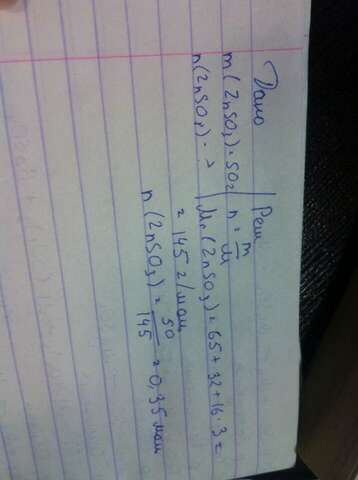 Дано
m(ZnSO₃)=50г
n(ZnSO₃)-?
Реш
n = m/M
Mr(ZnSO₃)=65+32+16·3=
=145 г/моль
n(ZnSO₃)=50/145=0,35 моль